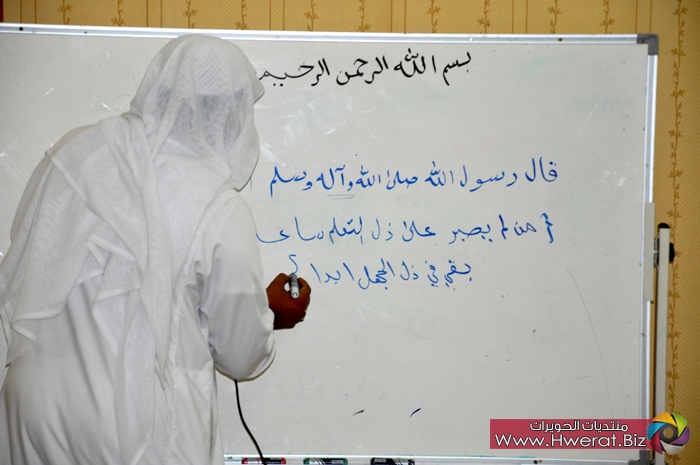 بسم الله الرحمن الرحيم
قال رسول الله صلى الله وآله وسلم
{ من لم يصبر على ذل التعلم ساعة
بقي في ذل الجهل ابدا }
منتديات الحويرات
Www.Hwerat.Biz